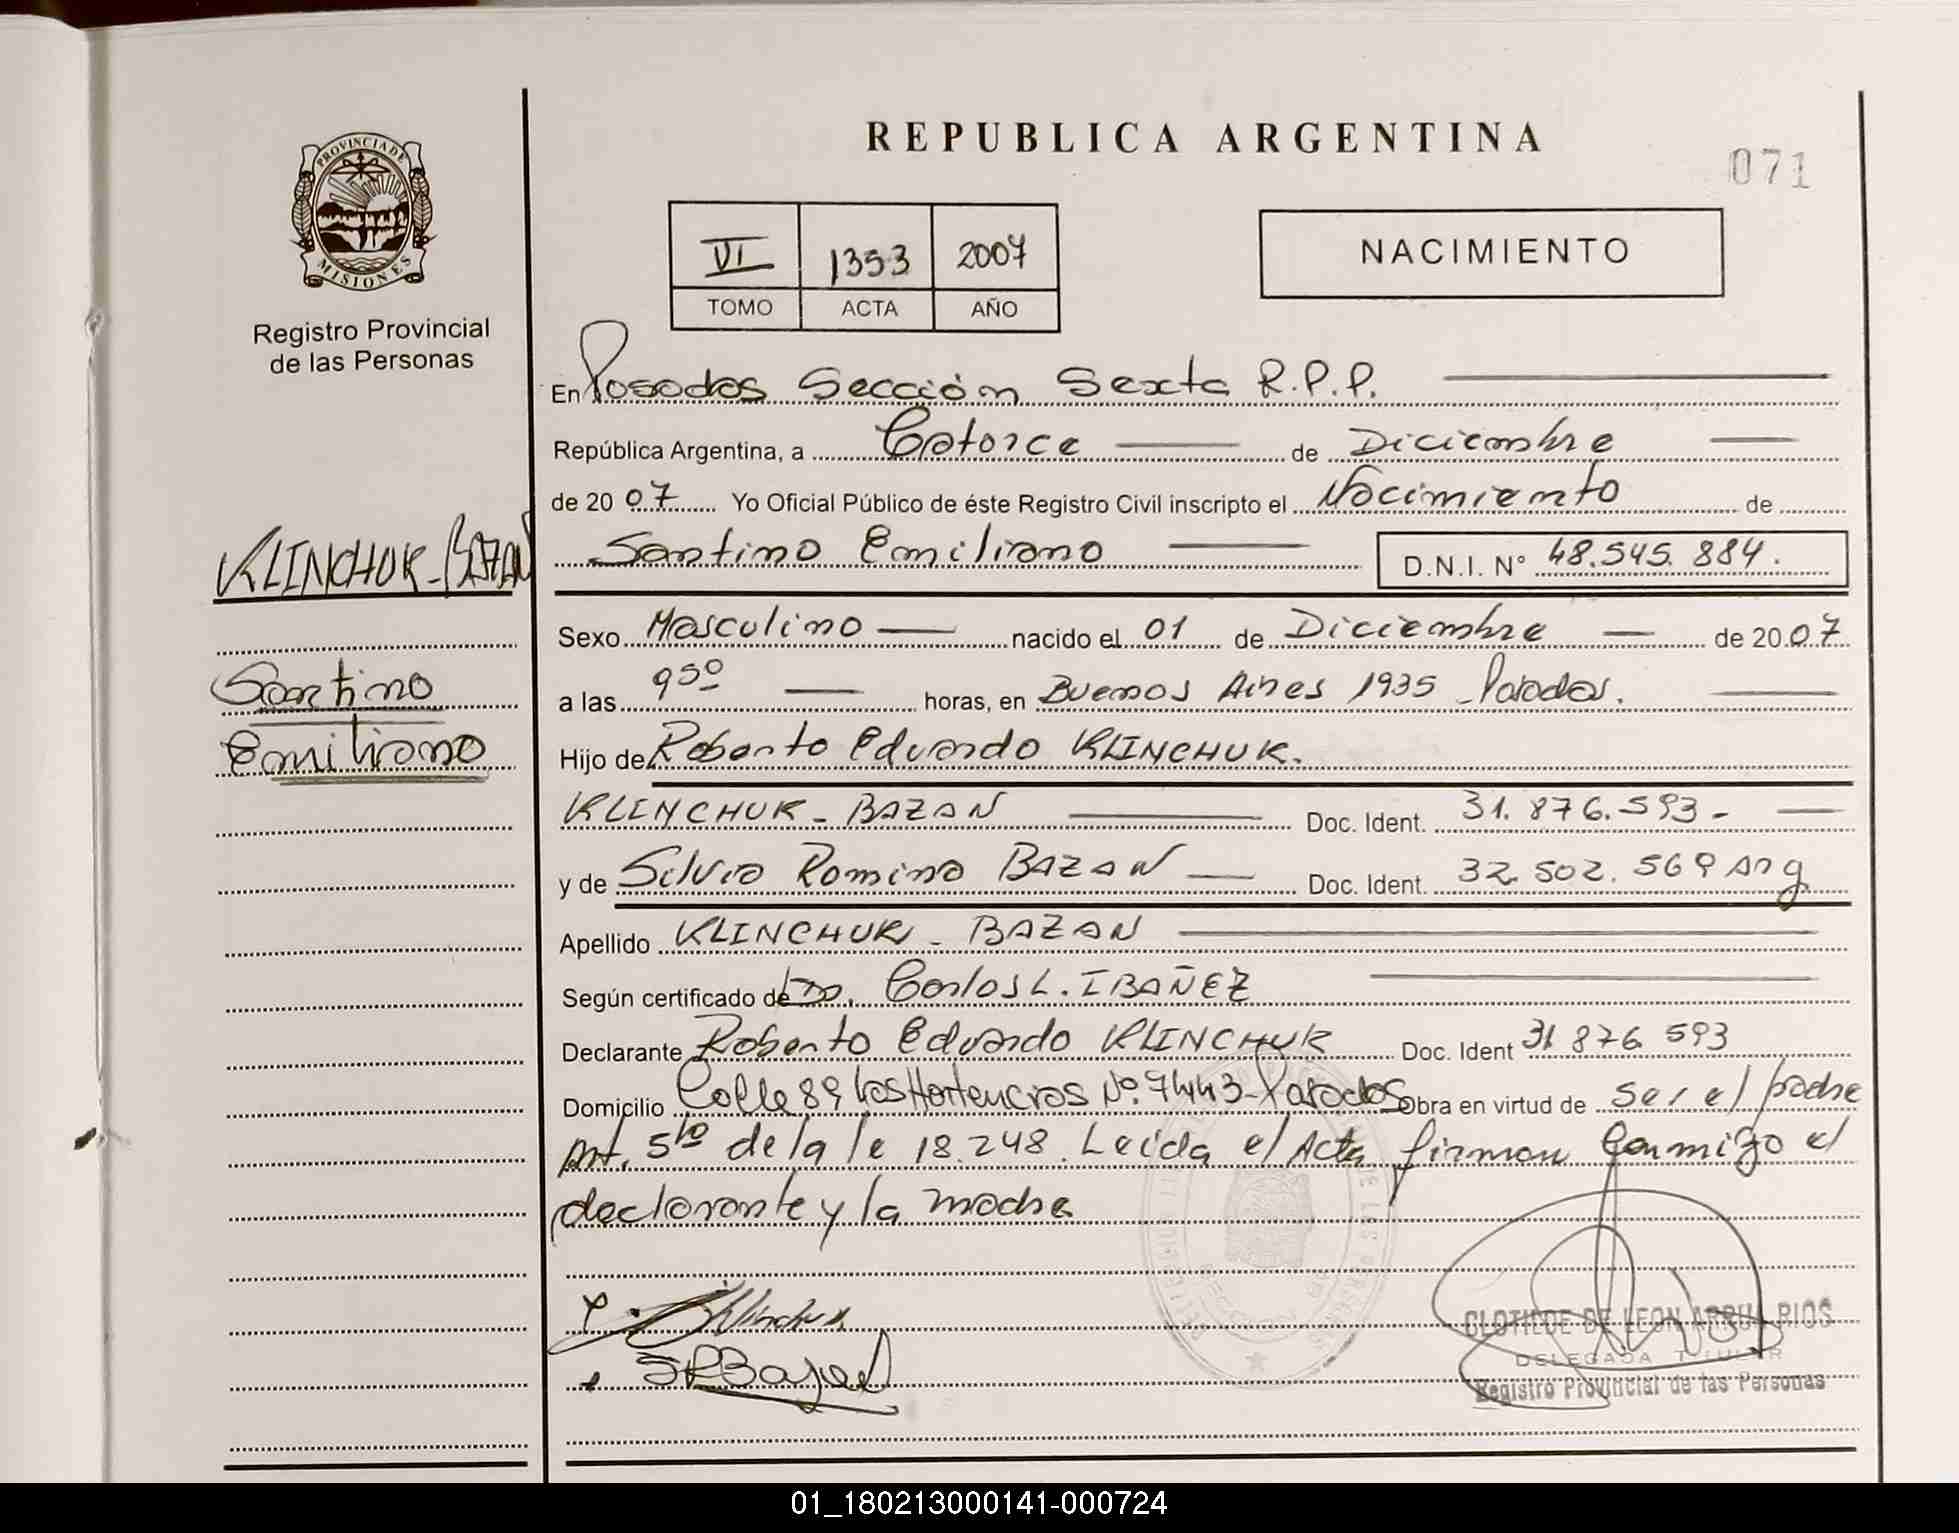 REPUBLICA ARGENTINA
071
PROVINCIA DE
MISIONES
Registro Provincial
de las Personas
VI 1353 2007
TOMO ACTA AÑO
NACIMIENTO
En Posadas Sección Sexta R.P.P.
República Argentina, a Catorce de Diciembre
de 20 07 Yo Oficial Público de éste Registro Civil inscripto el Nacimiento de
KLINCHUK-BAZAN
Santino Emiliano D.N.I. N° 48.545.884.
Sexo Masculino nacido el 01 de Diciembre de 20 07
Santino
a las 950 horas, en Buenos Aires 1935 Posadas.
Emiliano
Hijo de Roberto Eduardo KLINCHUK.
KLINCHUK - BAZAN Doc. Ident. 31.876.593.-
y de Silvia Romina BAZAN Doc. Ident. 32.502.569 Arg
Apellido KLINCHUK - BAZAN
Según certificado de Dr. Carlos L. IBAÑEZ
Declarante Roberto Eduardo KLINCHUK Doc. Ident 31 876 593
Domicilio Calle 89 Las Hortencias N° 7443-Posadas Obra en virtud de ser el padre
Art. 5to de la le 18.248. Leída el Acta firman conmigo el
declarante y la madre
Klinchuk
SRBazan
CLOTILDE DE LEON ARRUA RIOS
DELEGADA TITULAR
Registro Provincial de las Personas
01_180213000141-000724